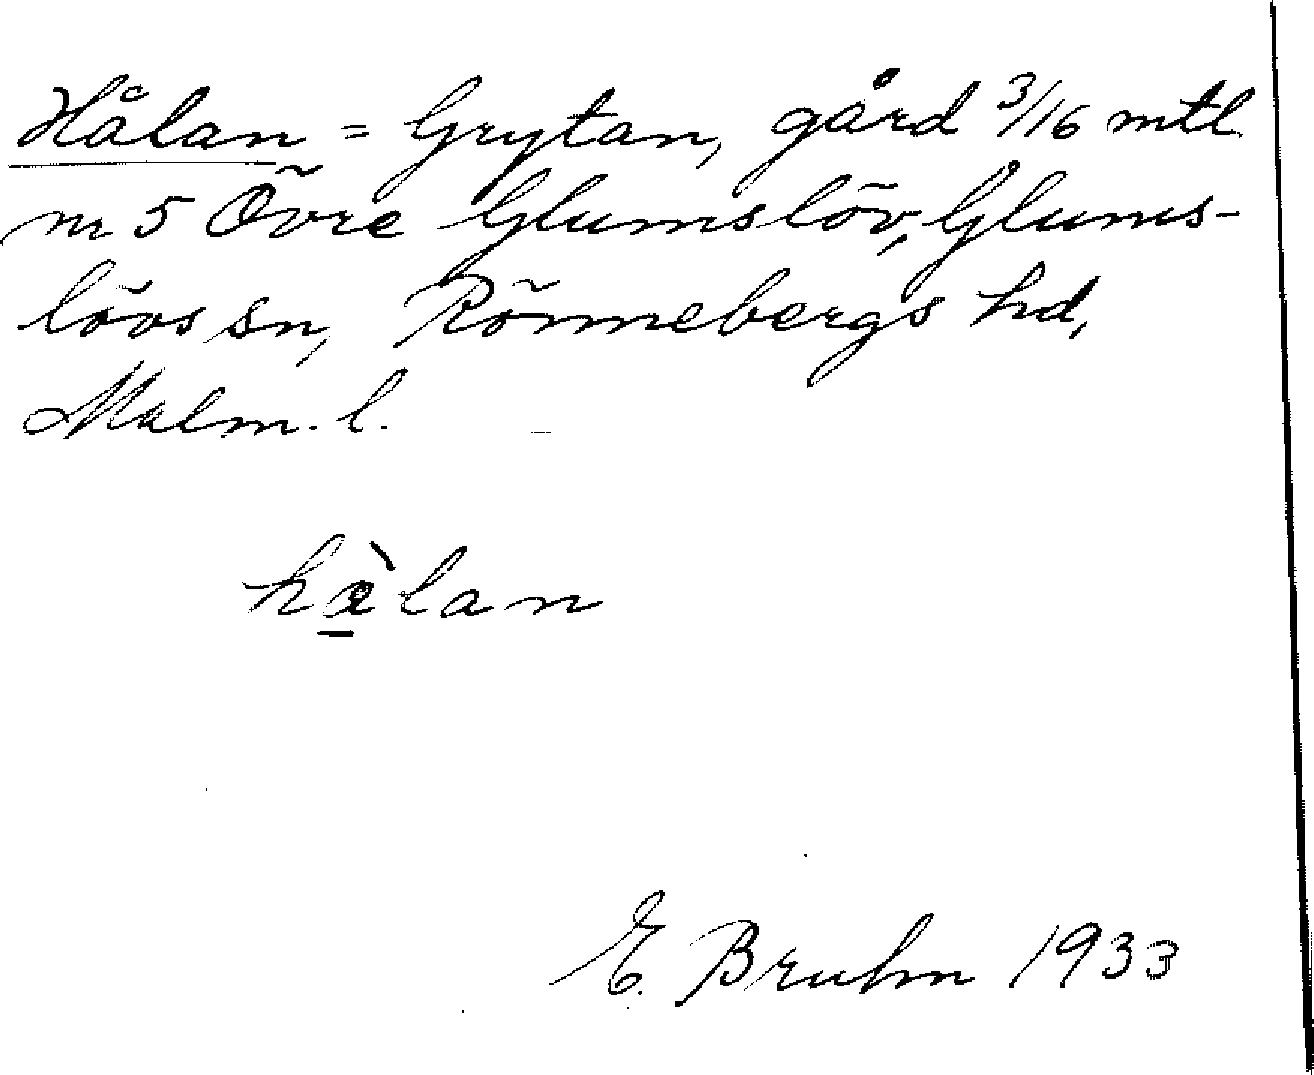 Hålan = Grytan, gård 3/16 mtl
nr 5 Övre Glumslöv, Glums-
lövs sn, Rönnebergs hd,
Malm. l.
hà̱lan
E. Bruhn 1933